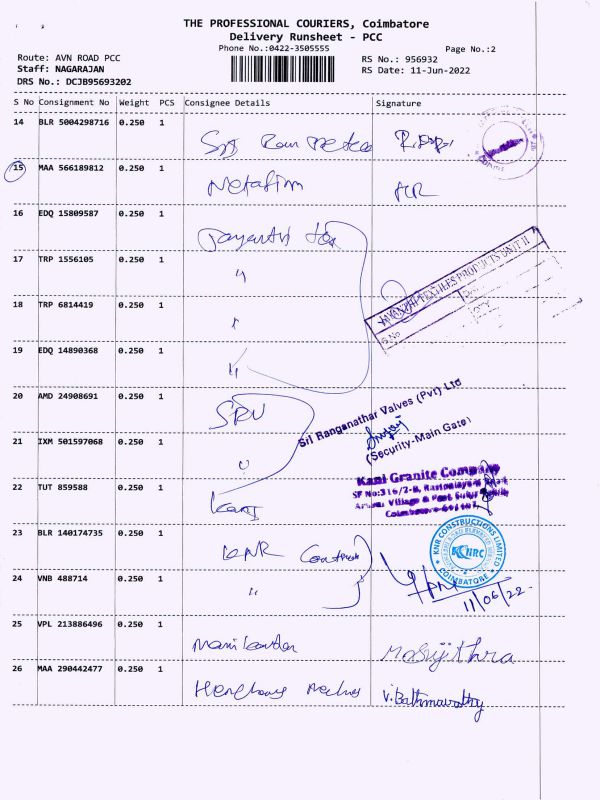 THE PROFESSIONAL COURIERS, Coimbatore
Delivery Runsheet - PCC
Phone No.:0422-3505555
Page No.:2
Route: AVN ROAD PCC
RS No.: 956932
Staff: NAGARAJAN
RS Date: 11-Jun-2022
DRS No.: DCJB95693202
S No Consignment No Weight PCS Consignee Details Signature
14 BLR 5004298716 0.250 1
15 MAA 566189812 0.250 1 Netafim
16 EDQ 15809587 0.250 1 Jayanthi Tex
17 TRP 1556105 0.250 1 "
JAYANTHI TEXTILES PRODUCTS UNIT II
S.No
18 TRP 6814419 0.250 1
19 EDQ 14890368 0.250 1 "
20 AMD 24908691 0.250 1 SRV
Sri Ranganathar Valves (Pvt) Ltd
(Security-Main Gate)
21 IXM 501597068 0.250 1
22 TUT 859588 0.250 1 Kani
Kani Granite Company
23 BLR 140174735 0.250 1 KNR
KNR CONSTRUCTIONS LIMITED
KNRC
COIMBATORE
24 VNB 488714 0.250 1 "
11/06/22
25 VPL 213886496 0.250 1 Manikandan
M Sujithra
26 MAA 290442477 0.250 1
V. Bathmavathy